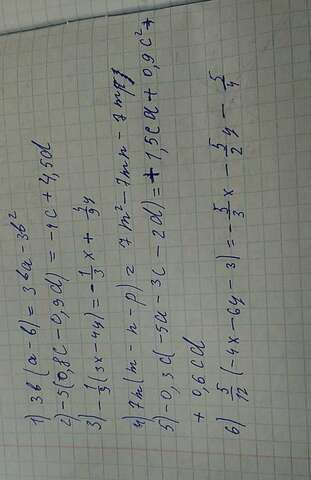 1) 3b(a-b) = 3ba-3b²
2) -5(0,8c-0,9d) = -4c+4,5d
3) -1/9(3x-4y) = -1/3x + 4/9y
4) 7m(m-n-p) = 7m²-7mn-7mp
5) -0,3c(-5a-3c-2d) = +1,5ca+0,9c²+
+0,6cd
6) 5/12(-4x-6y-3) = -5/3x - 5/2y - 5/4